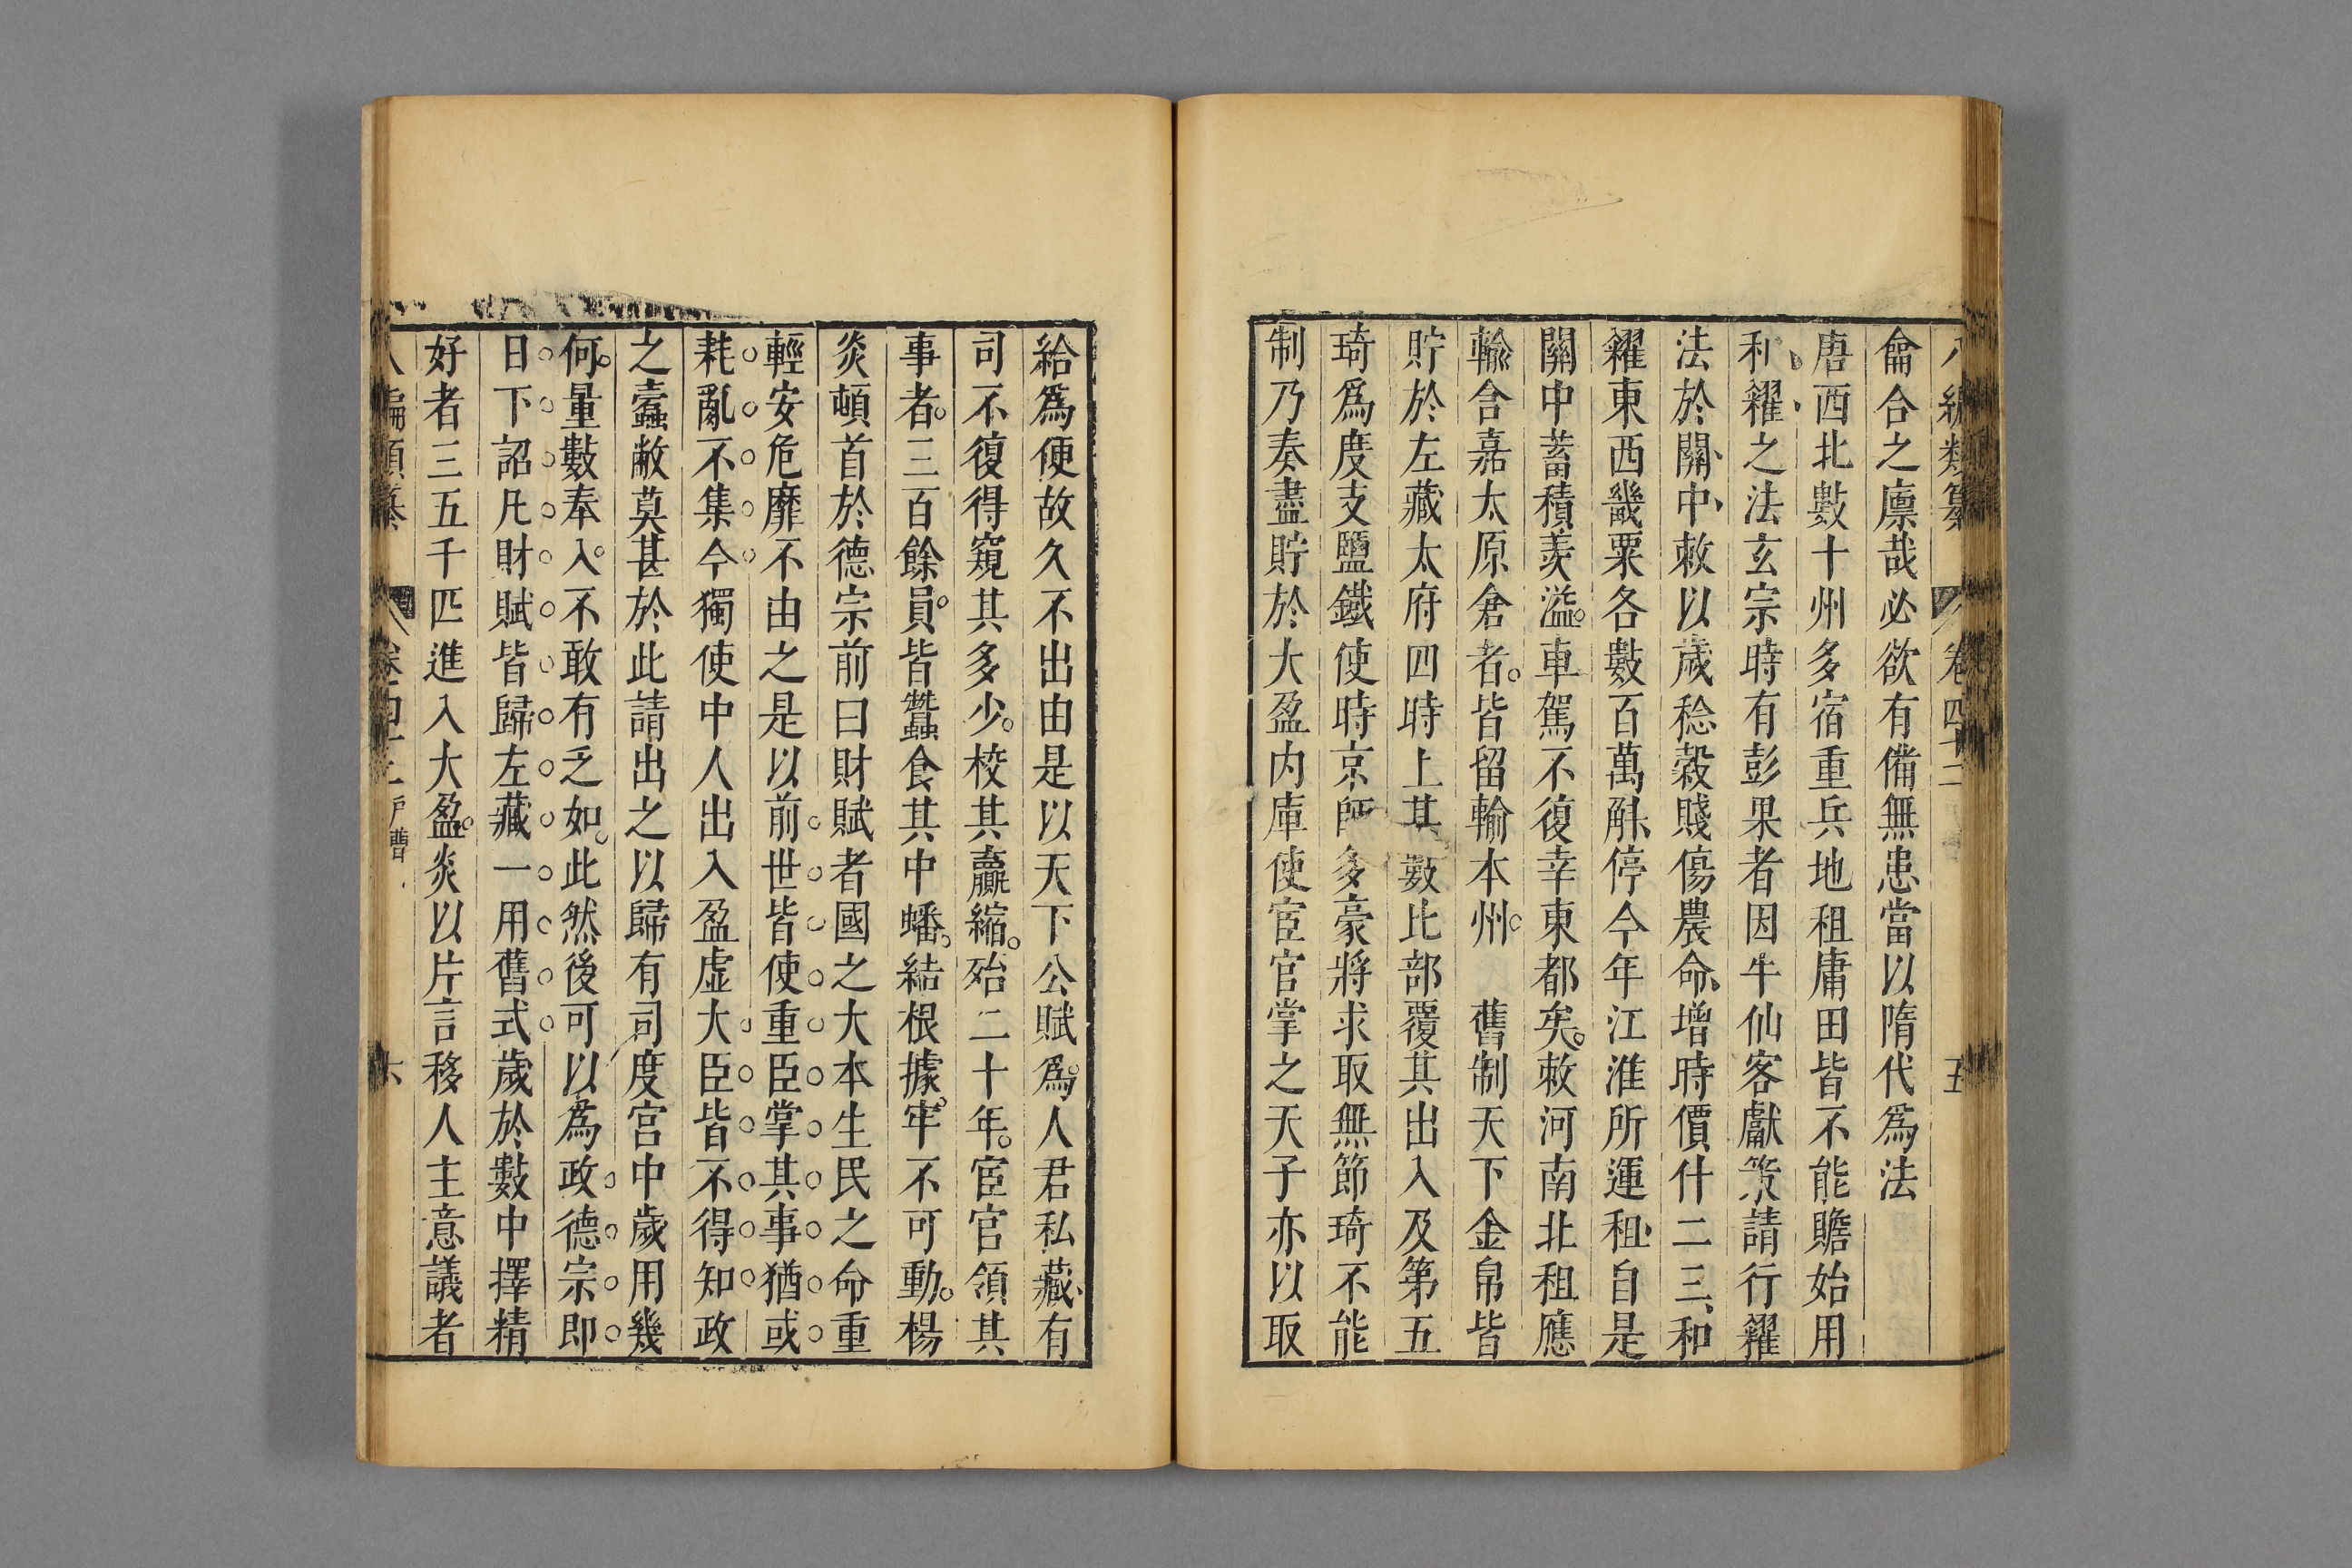 八編類纂 卷四十二 五
龠合之廩哉必欲有備無患當以隋代爲法
唐西北數十州多宿重兵地租庸田皆不能贍始用
和糴之法玄宗時有彭果者因牛仙客獻策請行糴
法於關中敕以歲稔穀賤傷農命增時價什二三和
糴東西畿粟各數百萬斛停今年江淮所運租自是
關中蓄積羨溢車駕不復幸東都矣敕河南北租應
輸含嘉太原倉者皆留輸本州 舊制天下金帛皆
貯於左藏太府四時上其數比部覆其出入及第五
琦爲度支鹽鐵使時京師多豪將求取無節琦不能
制乃奏盡貯於大盈内庫使宦官掌之天子亦以取
給爲便故久不出由是以天下公賦爲人君私藏有
司不復得窺其多少校其贏縮殆二十年宦官領其
事者三百餘員皆蠶食其中蟠結根據牢不可動楊
炎頓首於德宗前曰財賦者國之大本生民之命重
輕安危靡不由之是以前世皆使重臣掌其事猶或
耗亂不集今獨使中人出入盈虛大臣皆不得知政
之蠹敝莫甚於此請出之以歸有司度宫中歲用幾
何量數奉入不敢有乏如此然後可以爲政德宗即
日下詔凡財賦皆歸左藏一用舊式歲於數中擇精
好者三五千匹進入大盈炎以片言移人主意議者
八編類纂 卷四十二 戸曹 六